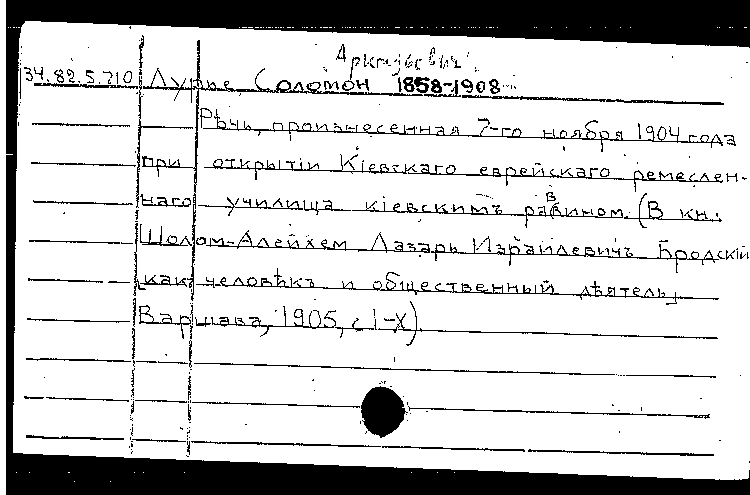 Аркадьевич
34.82.5.710 Лурье, Соломон 1858-1908
Рѣчь, произнесенная 7-го ноября 1904 года
при открытіи Кіевскаго еврейскаго ремеслен-
наго училища кіевскимъ раввином. (В кн.:
Шолом-Алейхем Лазарь Израилевичъ Бродскій
как человѣкъ и общественный дѣятель,
Варшава, 1905, с I-X).